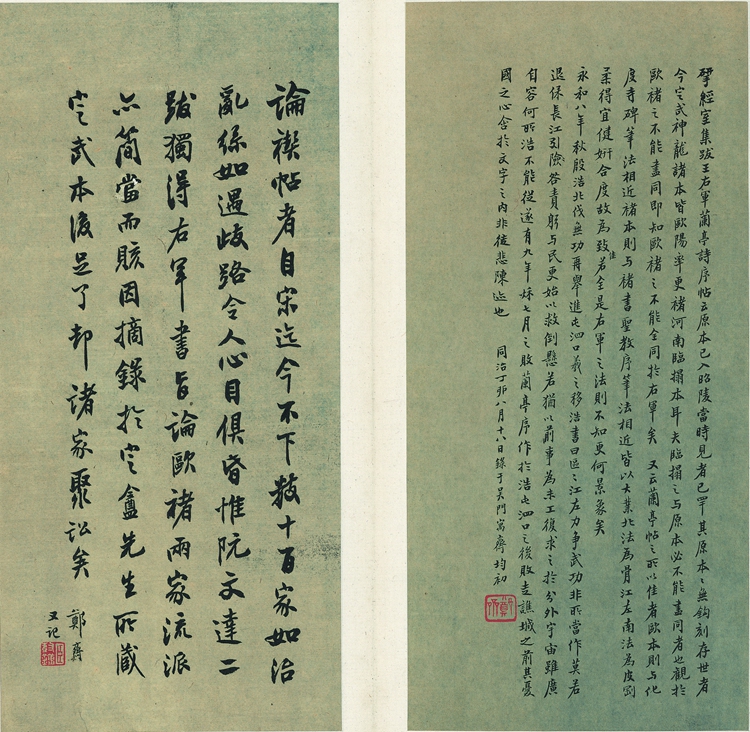 揅經室集跋王右軍蘭亭詩序帖云原本已入昭陵當時見者已罕其原本〻無鉤刻存世者
今定武神龍諸本皆歐陽率更褚河南臨搨本耳夫臨搨之与原本必不能盡同者也觀於
歐褚之不能盡同即知歐褚之不能全同於右軍矣 又云蘭亭帖之所以佳者歐本則与化
度寺碑筆法相近褚本則与褚書聖教序筆法相近皆以大業北法為骨江左南法為皮剛
柔得宜健妍合度故為致佳若全是右軍之法則不知更何景象矣
永和八年秋殷浩北伐無功再舉進屯泗口羲之移浩書曰區〻江左力爭武功非所當作莫若
退保長江引險咎責躬与民更始以救倒懸若猶以前事為未工復求之於分外宇宙雖廣
自容何所浩不能從遂有九年秋七月之敗蘭亭序作於浩屯泗口之後敗走譙城之前其憂
國之心含於文字之內非徒悲陳迹也 同治丁卯八月十八日錄于吳門寓齋均初
論禊帖者自宋迄今不下數十百家如治
亂絲如遇歧路令人心目俱昏惟阮文達二
跋獨得右軍書旨論歐褚兩家流派
亦簡當而賅因摘錄於定盦先生所藏
定武本後足了却諸家聚訟矣
鄭齋
又記